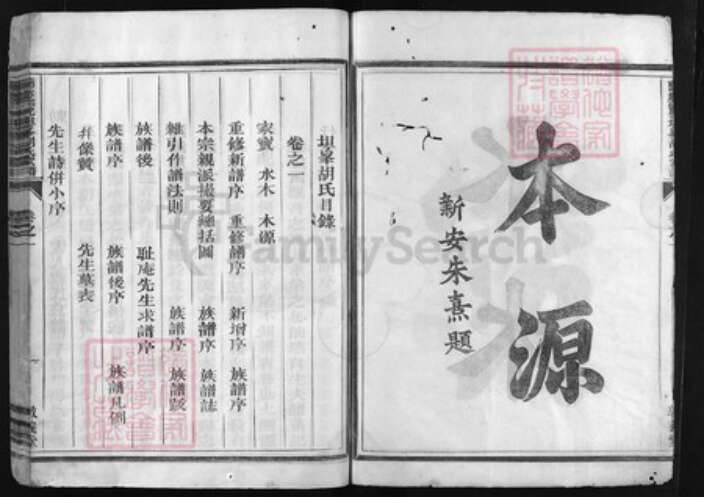 本源
新安朱熹題
坦峯胡氏目錄
卷之一
家寶 水木 本源
重修新譜序 重修譜序 新增序 族譜序
本宗親派撮要總括圖 族譜序 族譜誌
雜引作譜法則 族譜序 族譜跋
族譜後 耻庵先生求譜序
族譜序 族譜後序 族譜凡例
并像贊 先生墓表
先生詩併小序
FamilySearch